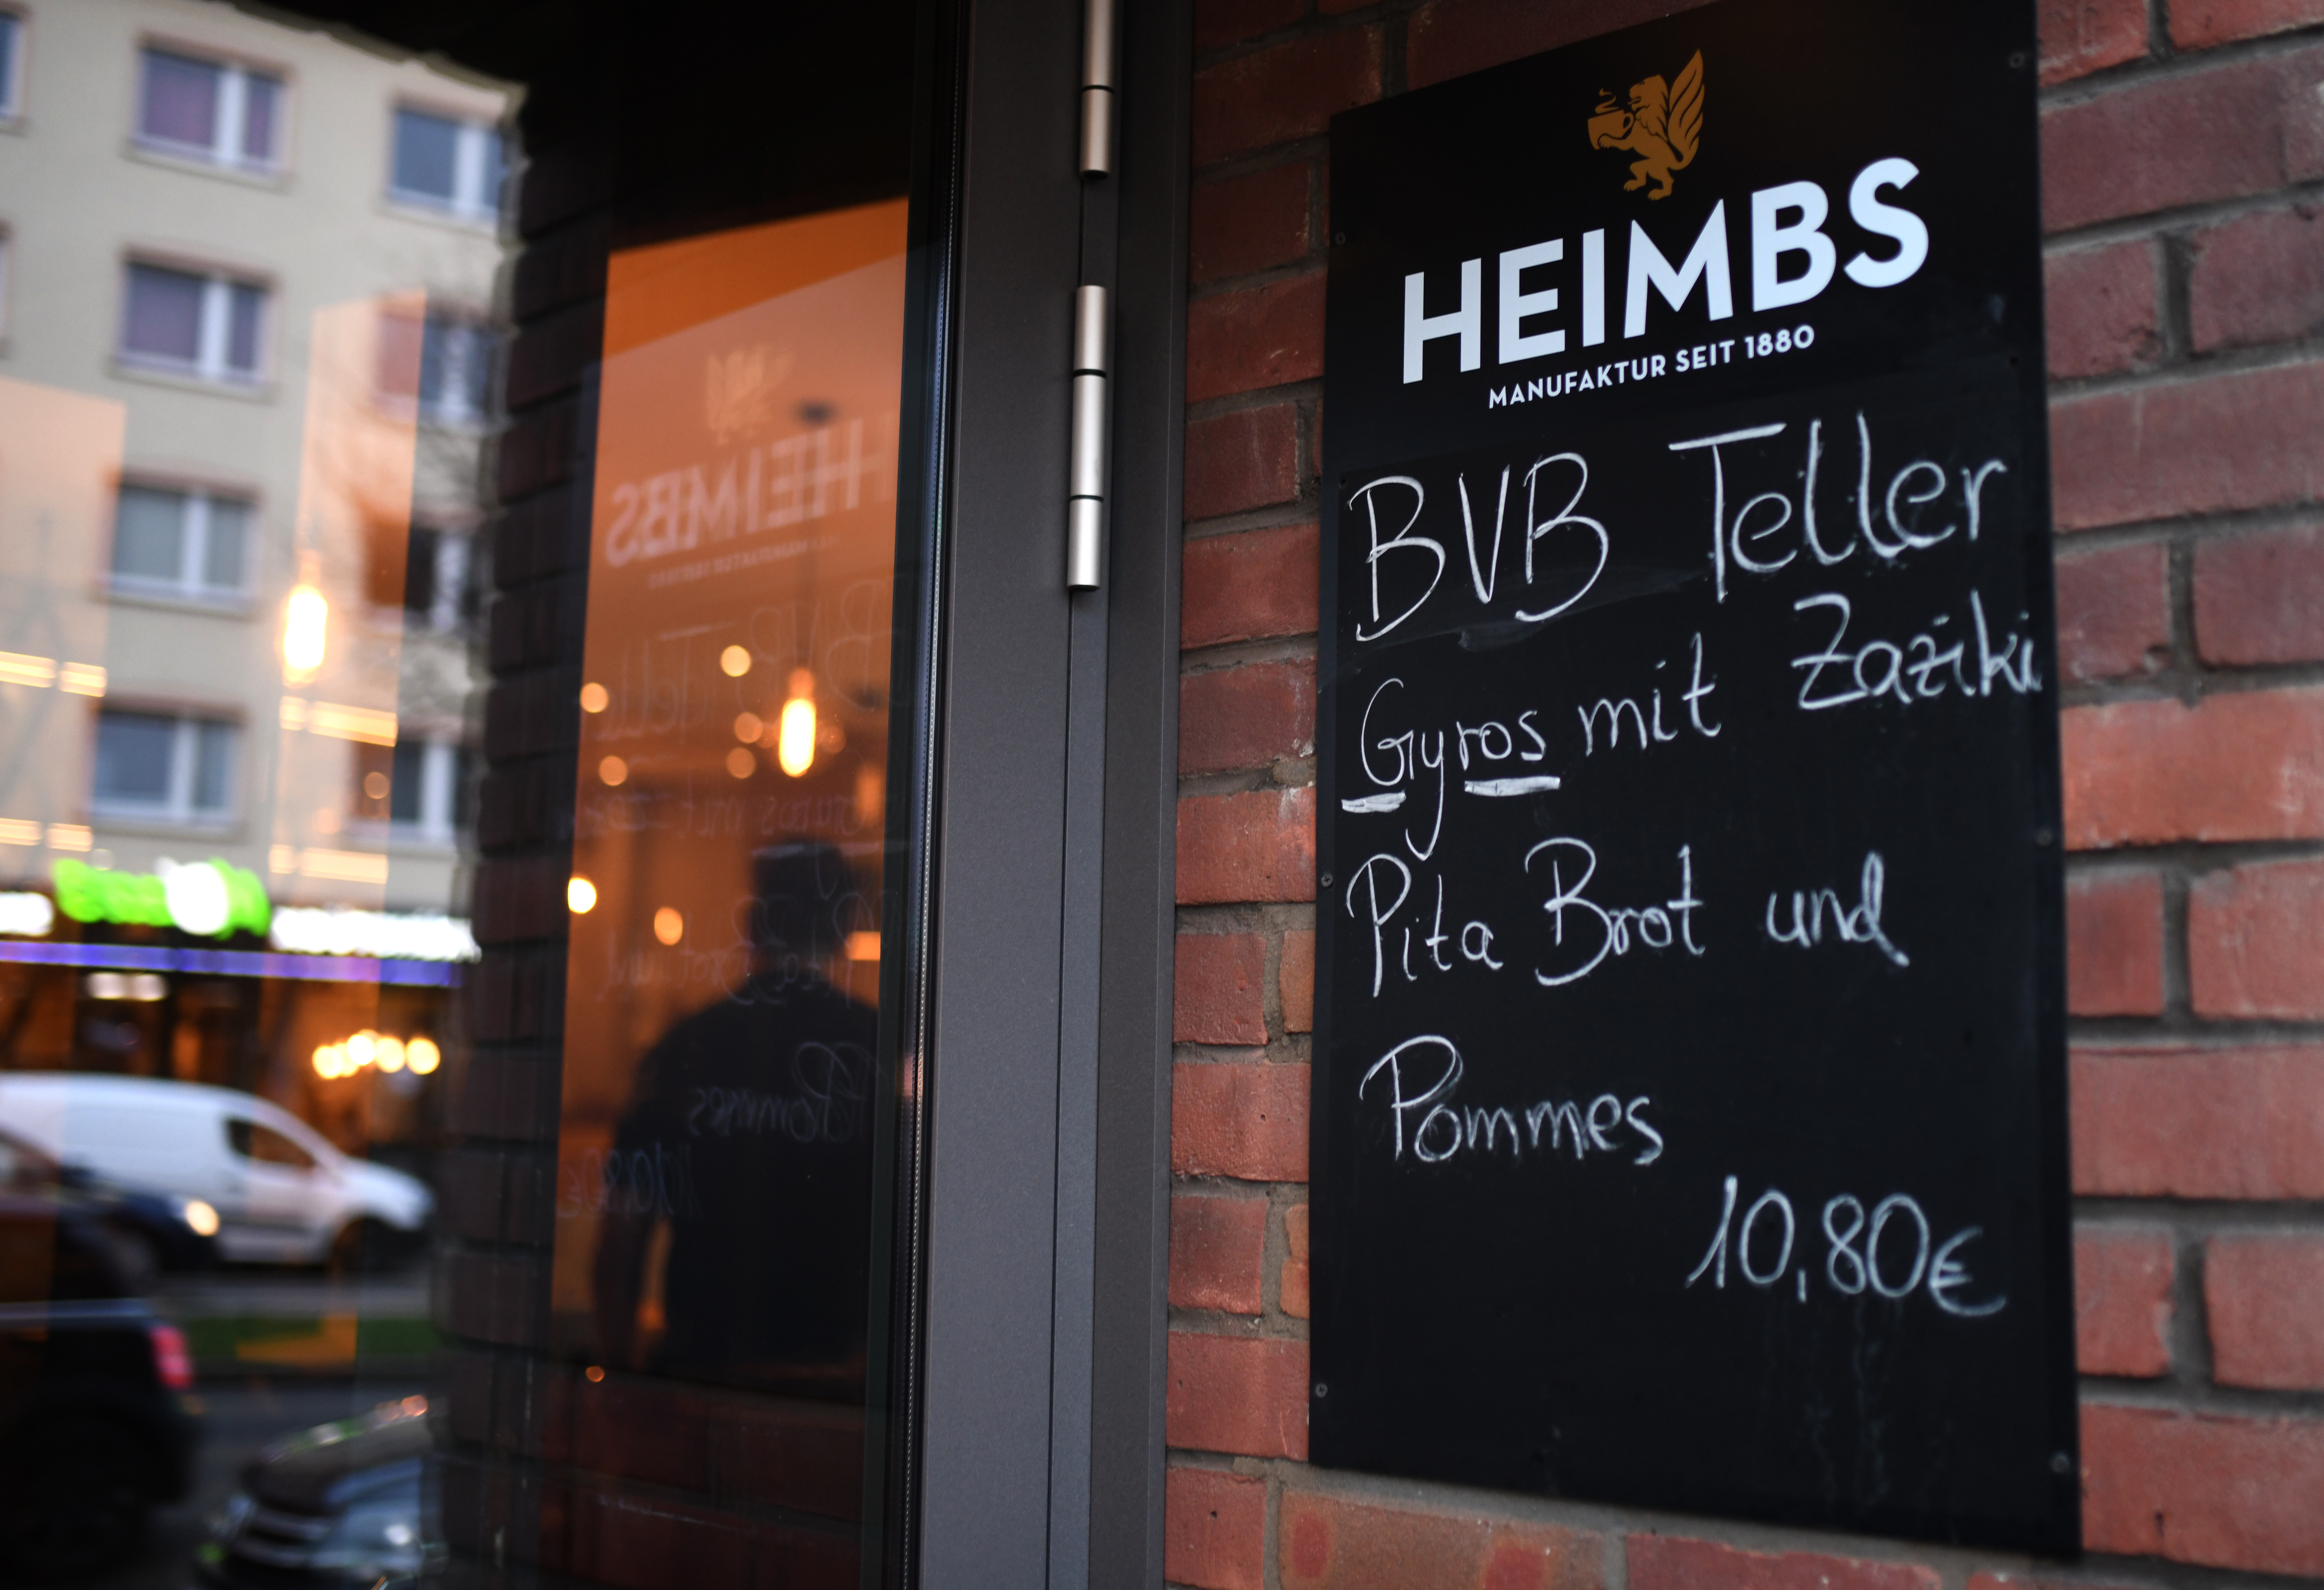 HEIMBS
MANUFAKTUR SEIT 1880
BVB Teller
Gyros mit Zaziki
Pita Brot und
Pommes
10,80€